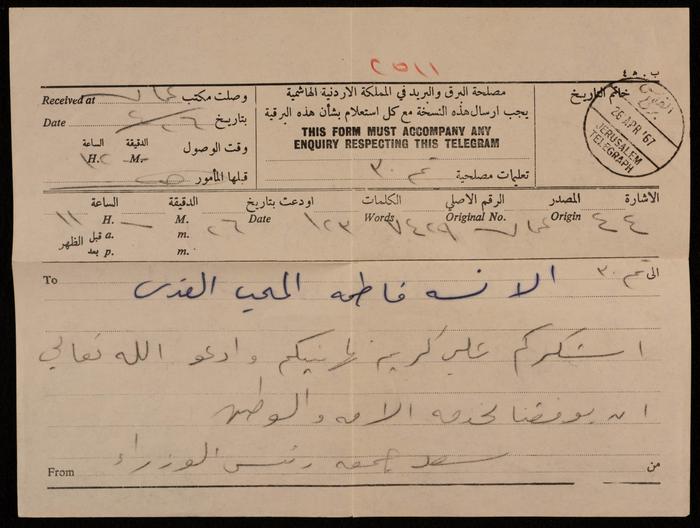 ٢٥١١
ب. ٤٥٠
مصلحة البرق والبريد في المملكة الاردنية الهاشمية
يجب ارسال هذه النسخة مع كل استعلام بشأن هذه البرقية
THIS FORM MUST ACCOMPANY ANY
ENQUIRY RESPECTING THIS TELEGRAM
تعليمات مصلحية ٣٠
خاتم التاريخ
26 APR '67
JERUSALEM
TELEGRAPH
وصلت مكتب عمان Received at
بتاريخ ٢٦ Date
وقت الوصول الدقيقة M. الساعة H.
قبلها المأمور
الاشارة ٤٤
المصدر Origin عمان
الرقم الاصلي Original No.
الكلمات Words ١٢٣
اودعت بتاريخ Date ٢٦
الدقيقة M. الساعة H. ١١
قبل a. m. الظهر
بعد p. m.
الى ٣٠ To
الانسه فاطمه المحب القدس
اشكركم على كريم تهانيكم وادعو الله تعالى
ان يوفقنا لخدمه الامه والوطن
سعد جمعه رئيس الوزراء
من From